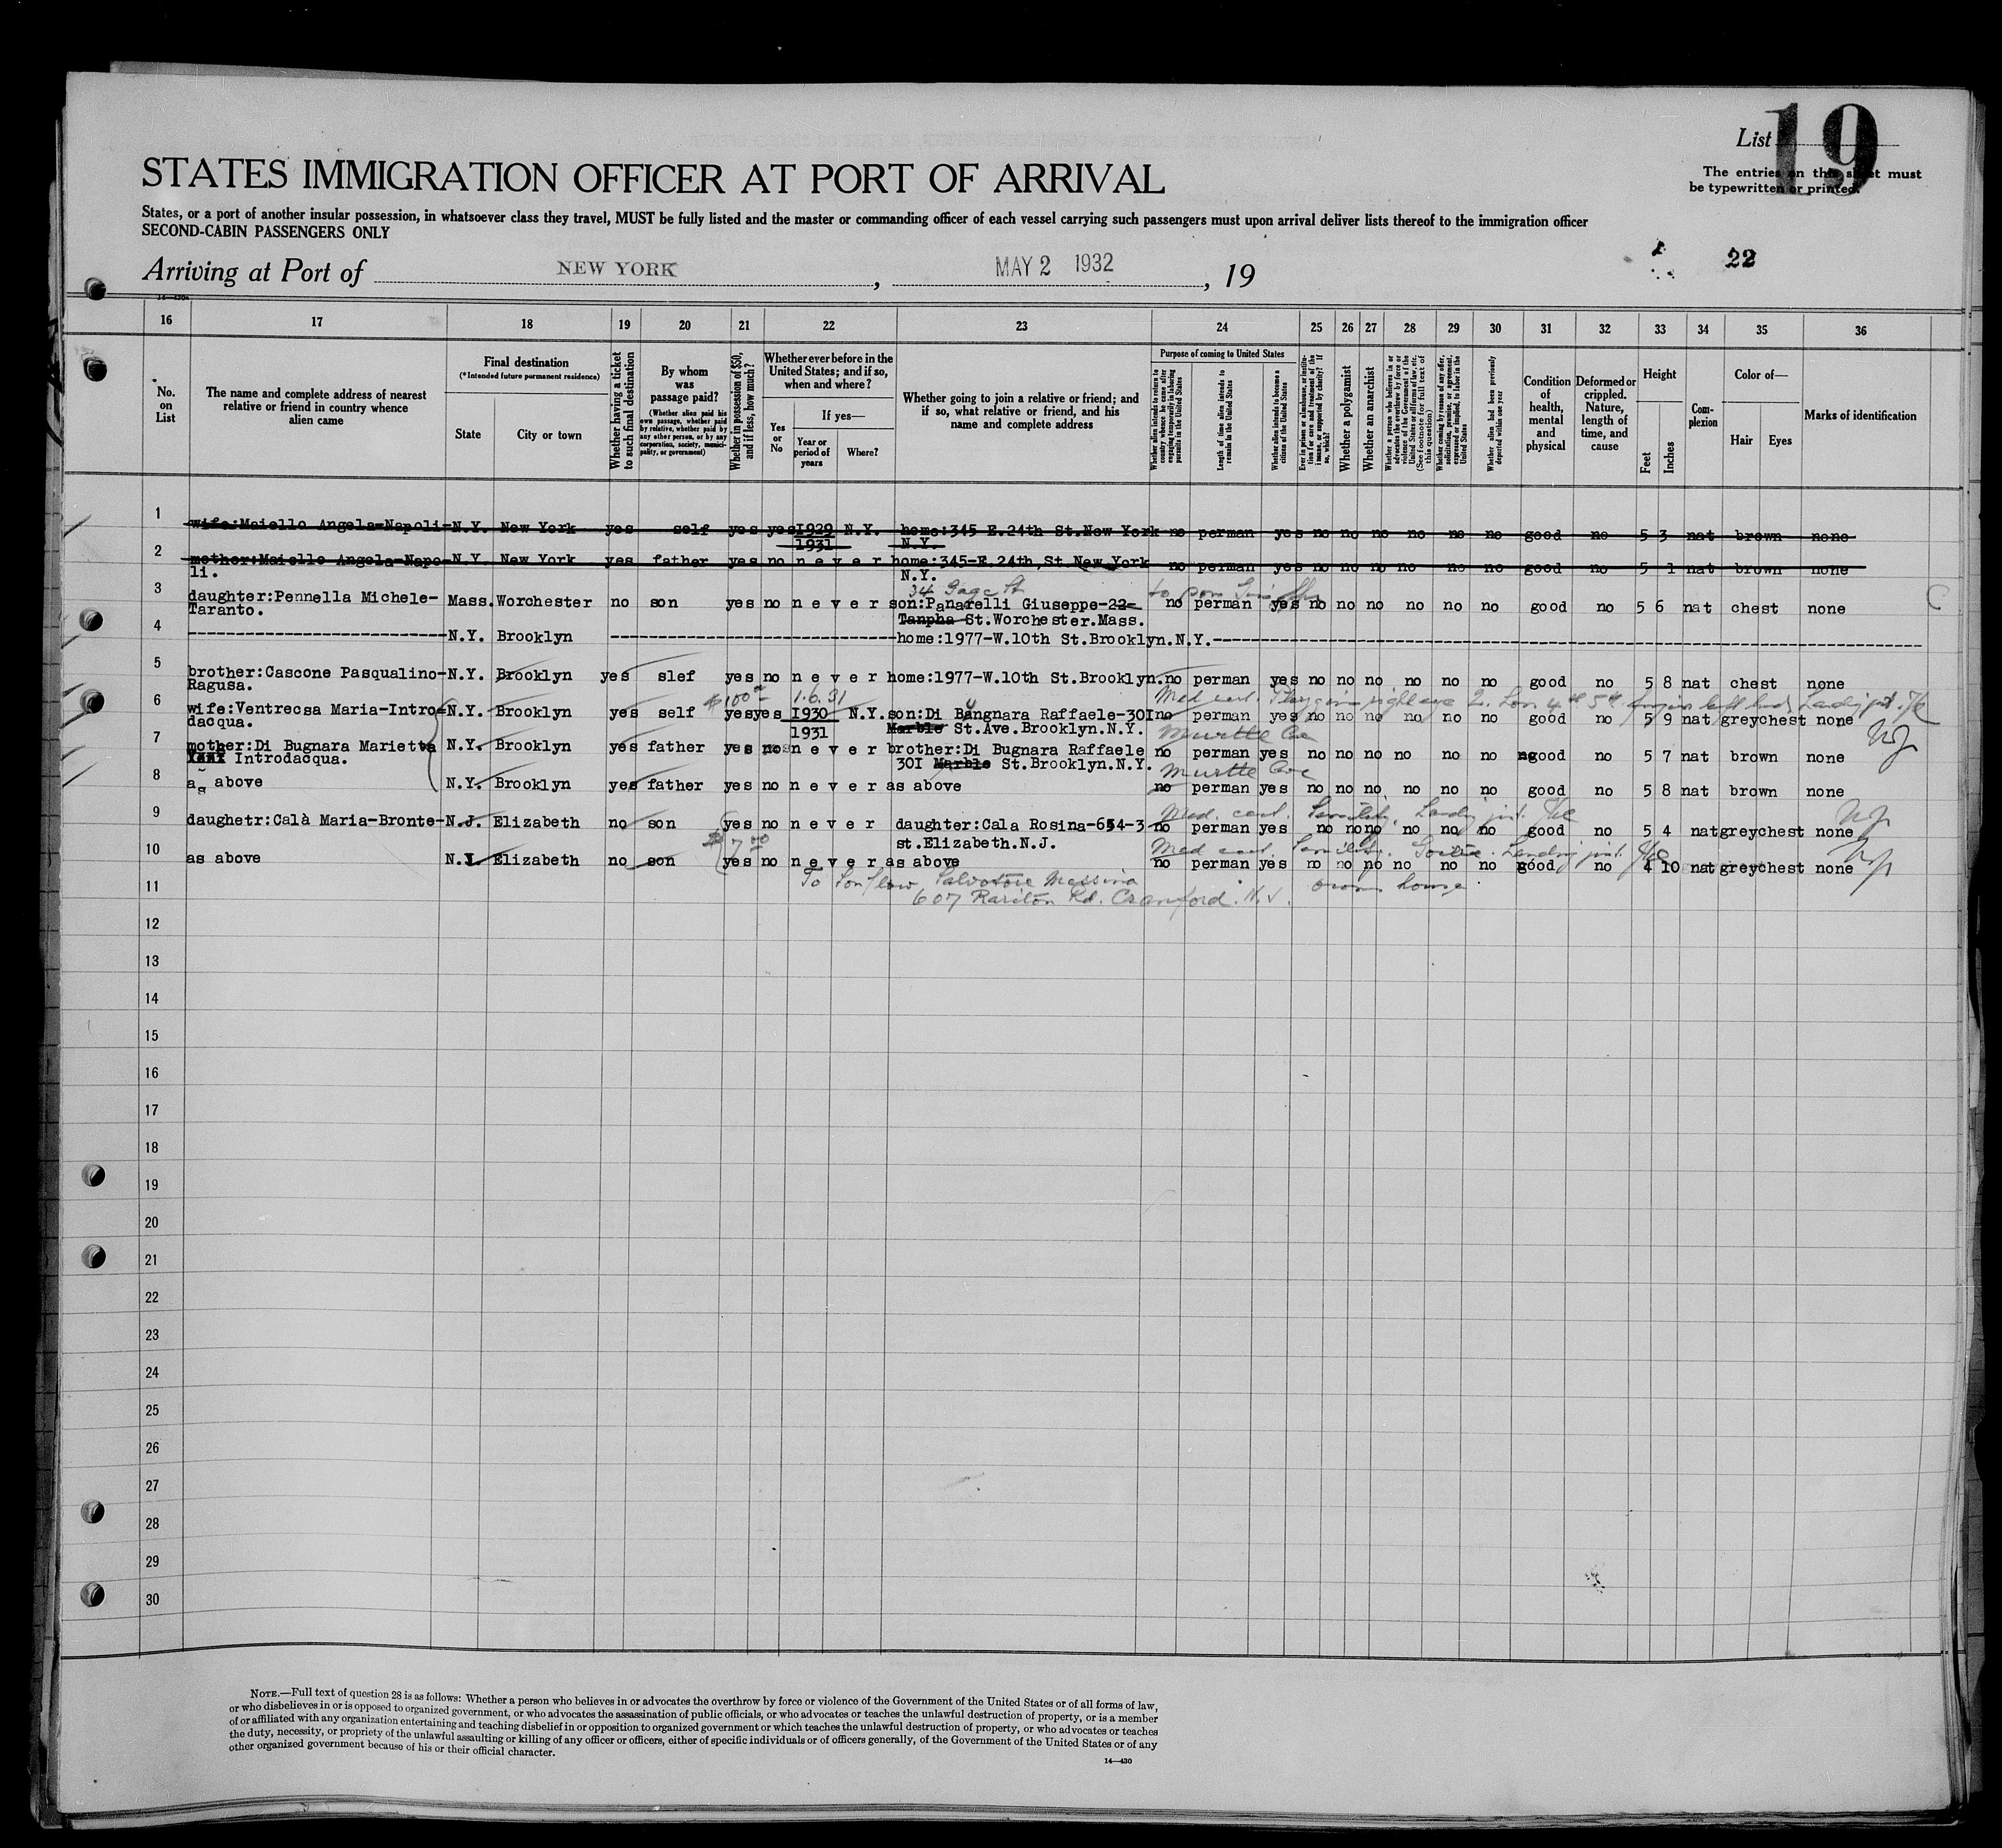 List 19
The entries on this sheet must
be typewritten or printed.
STATES IMMIGRATION OFFICER AT PORT OF ARRIVAL
States, or a port of another insular possession, in whatsoever class they travel, MUST be fully listed and the master or commanding officer of each vessel carrying such passengers must upon arrival deliver lists thereof to the immigration officer
SECOND-CABIN PASSENGERS ONLY
Arriving at Port of NEW YORK, MAY 2 1932, 19
22
14—430A
16 17 18 19 20 21 22 23 24 25 26 27 28 29 30 31 32 33 34 35 36
No. on List
The name and complete address of nearest relative or friend in country whence alien came
Final destination
(*Intended future permanent residence)
State
City or town
Whether having a ticket to such final destination
By whom was passage paid?
(Whether alien paid his own passage, whether paid by relative, whether paid by any other person, or by any corporation, society, municipality, or government)
Whether in possession of $50, and if less, how much?
Whether ever before in the United States; and if so, when and where?
Yes or No
If yes—
Year or period of years
Where?
Whether going to join a relative or friend; and if so, what relative or friend, and his name and complete address
Purpose of coming to United States
Whether alien intends to return to country whence he came after engaging temporarily in laboring pursuits in the United States
Length of time alien intends to remain in the United States
Whether alien intends to become a citizen of the United States
Ever in prison or almshouse, or institution for care and treatment of the insane, or supported by charity? If so, which?
Whether a polygamist
Whether an anarchist
Whether a person who believes in or advocates the overthrow by force or violence of the Government of the United States or all forms of law, etc. (See footnote for full text of this question)
Whether coming by reason of any offer, solicitation, promise, or agreement, expressed or implied, to labor in the United States
Whether alien had been previously deported within one year
Condition of health, mental and physical
Deformed or crippled. Nature, length of time, and cause
Height
Feet
Inches
Complexion
Color of—
Hair
Eyes
Marks of identification
1 wife:Maiello Angela-Napoli-N.Y. New York yes self yes yes 1929 N.Y. home:345 E.24th St.New York no perman yes no no no no no no good no 5 3 nat brown none
1931 N.Y.
2 mother:Maiello Angela-Napo-N.Y. New York yes father yes no never home:345-E.24th,St.New York no perman yes no no no no no no good no 5 1 nat brown none
li. N.Y.
34 Gage St
3 daughter:Pennella Michele- Mass. Worchester no son yes no never son:Panarelli Giuseppe-22- no perman yes no no no no no no good no 5 6 nat chest none
Taranto. Tanpha St.Worchester.Mass.
4 ---------------------------N.Y. Brooklyn ------------------------------home:1977-W.10th St.Brooklyn.N.Y.------------------------------
5 brother:Cascone Pasqualino-N.Y. Brooklyn yes slef yes no never home:1977-W.10th St.Brooklyn. no perman yes no no no no no no good no 5 8 nat chest none
Ragusa.
$100 1.6.31 Med cert. Pterygium right eye
6 wife:Ventresa Maria-Intro-N.Y. Brooklyn yes self yes yes 1930 N.Y. son:Di Bangnara Raffaele-30I no perman yes no no no no no no good no 5 9 nat greychest none
dacqua. 1931 Marble St.Ave.Brooklyn.N.Y.
Murtle Ave
7 mother:Di Bugnara Marietta N.Y. Brooklyn yes father yes no never brother:Di Bugnara Raffaele no perman yes no no no no no no good no 5 7 nat brown none
Introdacqua. 30I Marble St.Brooklyn.N.Y.
Murtle Ave
8 as above N.Y. Brooklyn yes father yes no never as above no perman yes no no no no no no good no 5 8 nat brown none
Med. cert. Senility.
9 daughetr:Calà Maria-Bronte-N.J. Elizabeth no son yes no never daughter:Cala Rosina-654-3 no perman yes no no no no no no good no 5 4 nat greychest none
$7 00 st.Elizabeth.N.J. Med cert. Senility. Goitre.
10 as above N.J. Elizabeth no son yes no never as above no perman yes no no no no no no good no 4 10 nat greychest none
11 To Son/law Salvatore Messina own house
607 Rariton Rd. Cranford. N.J.
12
13
14
15
16
17
18
19
20
21
22
23
24
25
26
27
28
29
30
NOTE.—Full text of question 28 is as follows: Whether a person who believes in or advocates the overthrow by force or violence of the Government of the United States or of all forms of law,
or who disbelieves in or is opposed to organized government, or who advocates the assassination of public officials, or who advocates or teaches the unlawful destruction of property, or is a member
of or affiliated with any organization entertaining and teaching disbelief in or opposition to organized government or which teaches the unlawful destruction of property, or who advocates or teaches
the duty, necessity, or propriety of the unlawful assaulting or killing of any officer or officers, either of specific individuals or of officers generally, of the Government of the United States or of any
other organized government because of his or their official character.
14—430